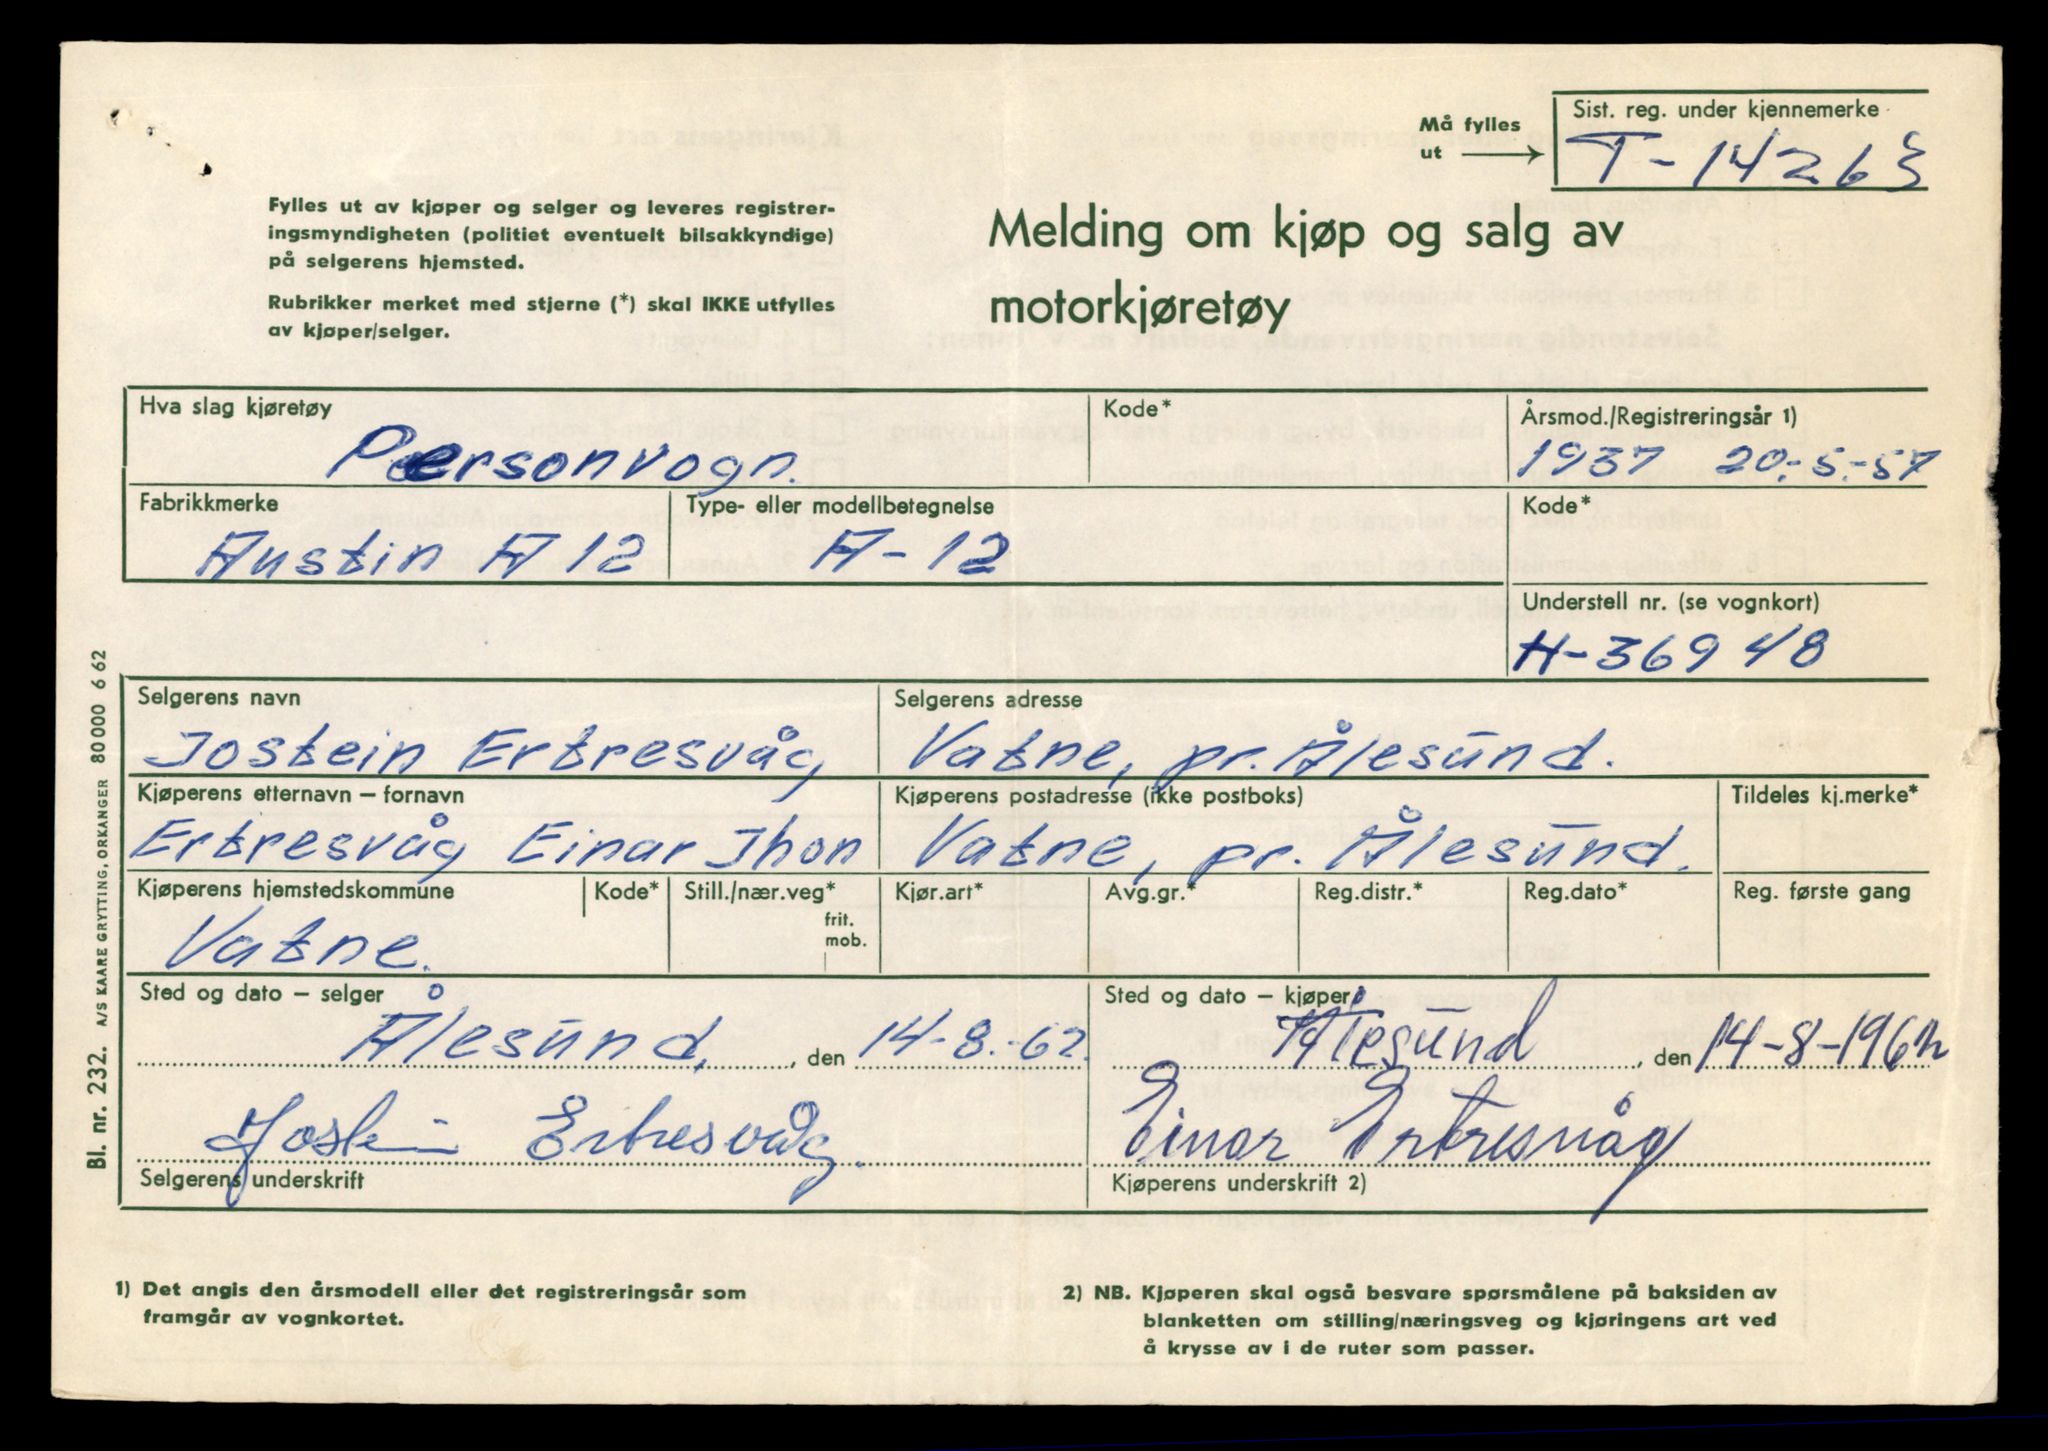 Må fylles
ut
Sist. reg. under kjennemerke
T-14263
Fylles ut av kjøper og selger og leveres registrer-
ingsmyndigheten (politiet eventuelt bilsakkyndige)
på selgerens hjemsted.
Rubrikker merket med stjerne (*) skal IKKE utfylles
av kjøper/selger.
Melding om kjøp og salg av
motorkjøretøy
Hva slag kjøretøy
Personvogn.
Kode*
Årsmod./Registreringsår 1)
1937 20.-5.-57
Fabrikkmerke
Austin A 12
Type- eller modellbetegnelse
A-12
Kode*
Understell nr. (se vognkort)
H-36948
Selgerens navn
Jostein Ertresvåg
Selgerens adresse
Vatne, pr. Ålesund.
Kjøperens etternavn – fornavn
Ertresvåg Einar Jhon
Kjøperens postadresse (ikke postboks)
Vatne, pr. Ålesund.
Tildeles kj.merke*
Kjøperens hjemstedskommune
Vatne.
Kode*
Still./nær.veg*
frit.
mob.
Kjør.art*
Avg.gr.*
Reg.distr.*
Reg.dato*
Reg. første gang
Sted og dato – selger
Ålesund, , den 14-8.-62.
Jostein Ertresvåg.
Selgerens underskrift
Sted og dato – kjøper
Ålesund , den 14-8-1962
Einar Ertresvåg
Kjøperens underskrift 2)
1) Det angis den årsmodell eller det registreringsår som
framgår av vognkortet.
2) NB. Kjøperen skal også besvare spørsmålene på baksiden av
blanketten om stilling/næringsveg og kjøringens art ved
å krysse av i de ruter som passer.
Bl. nr. 232. A/S KAARE GRYTTING, ORKANGER 80 000 6 62